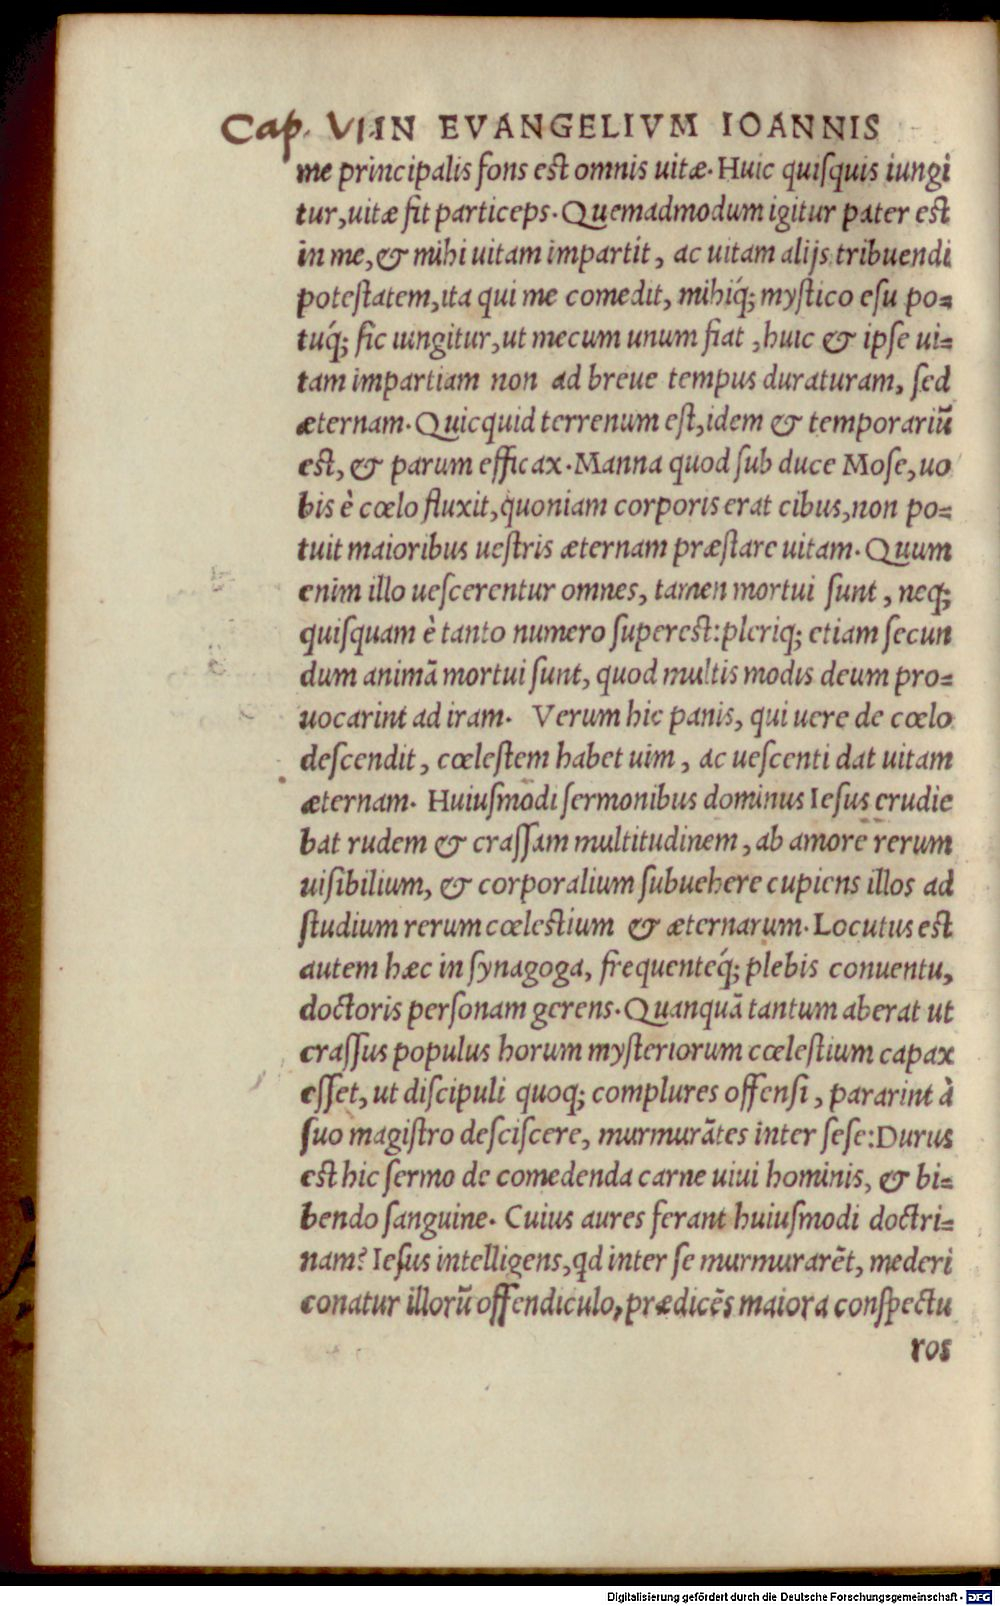 Cap. VI. IN EVANGELIVM IOANNIS
me principalis fons est omnis uitæ. Huic quiſquis iungi
tur, uitæ fit particeps. Quemadmodum igitur pater est
in me, & mihi uitam impartit, ac uitam alijs tribuendi
potestatem, ita qui me comedit, mihiq́; mystico eſu po=
tuq́; ſic iungitur, ut mecum unum fiat, huic & ipſe ui=
tam impartiam non ad breue tempus duraturam, ſed
æternam. Quicquid terrenum eſt, idem & temporariũ
est, & parum efficax. Manna quod ſub duce Moſe, uo
bis è cœlo fluxit, quoniam corporis erat cibus, non po=
tuit maioribus ueſtris æternam præſtare uitam. Quum
enim illo ueſcerentur omnes, tamen mortui ſunt, neq;
quiſquam è tanto numero ſuperest: pleriq; etiam ſecun
dum animã mortui ſunt, quod multis modis deum pro=
uocarint ad iram. Verum hic panis, qui uere de cœlo
deſcendit, cœleſtem habet uim, ac ueſcenti dat uitam
æternam. Huiuſmodi ſermonibus dominus Ieſus erudie
bat rudem & craſſam multitudinem, ab amore rerum
uiſibilium, & corporalium ſubuehere cupiens illos ad
ſtudium rerum cœlestium & æternarum. Locutus est
autem hæc in ſynagoga, frequenteq́; plebis conuentu,
doctoris perſonam gerens. Quanquã tantum aberat ut
craſſus populus horum myſteriorum cœleſtium capax
eſſet, ut diſcipuli quoq; complures offenſi, pararint à
ſuo magiſtro deſciſcere, murmurãtes inter ſeſe: Durus
est hic ſermo de comedenda carne uiui hominis, & bi=
bendo ſanguine. Cuius aures ferant huiuſmodi doctri=
nam? Ieſus intelligens, qd inter ſe murmurarẽt, mederi
conatur illorũ offendiculo, prædicẽs maiora conſpectu
ros
Digitalisierung gefördert durch die Deutsche Forschungsgemeinschaft - DFG